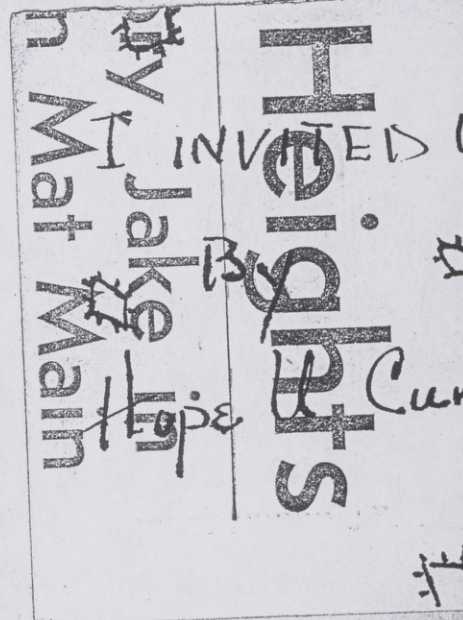 Heights
Jake In
Mat Main
I INVITED
By
Hope U